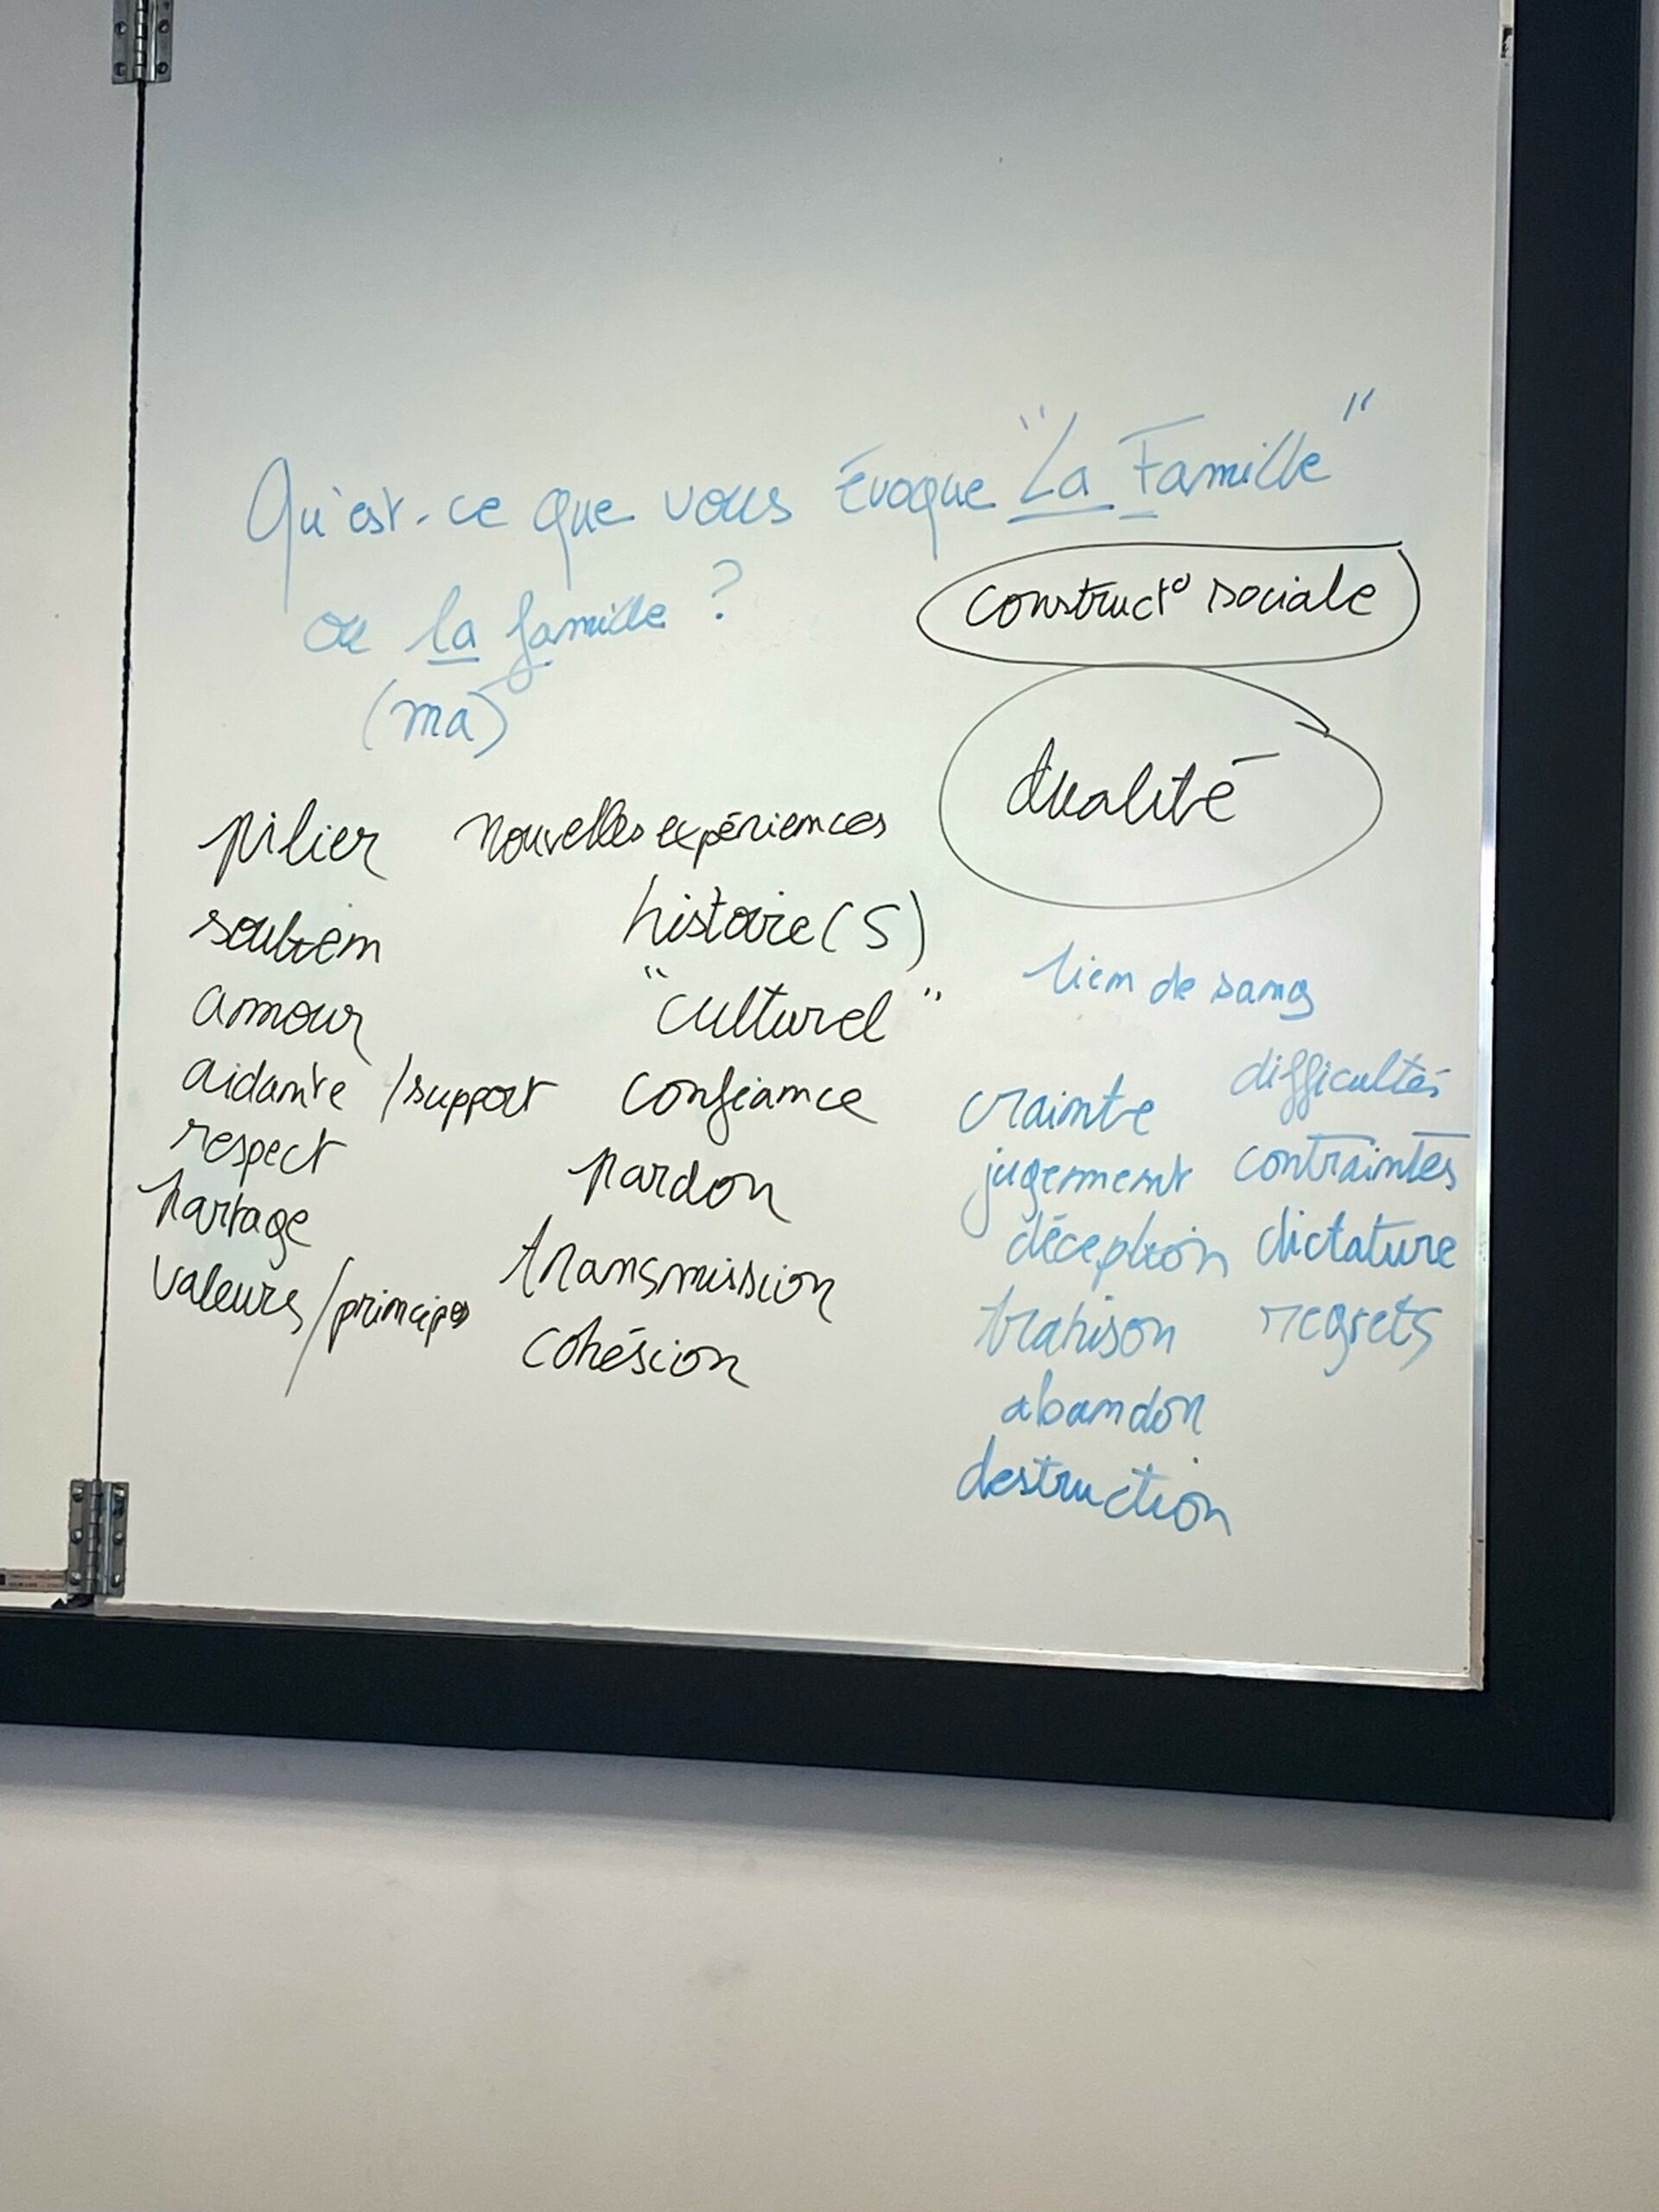 Qu'est-ce que vous Évoque "La Famille"
ou la famille ?
(ma)
construct° sociale
dualité
pilier
soutien
amour
aidante /support
respect
partage
valeurs/principes
nouvelles expériences
histoire(s)
"culturel"
confiance
pardon
transmission
cohésion
lien de sang
crainte
jugement
déception
trahison
abandon
destruction
difficultés
contraintes
dictature
regrets